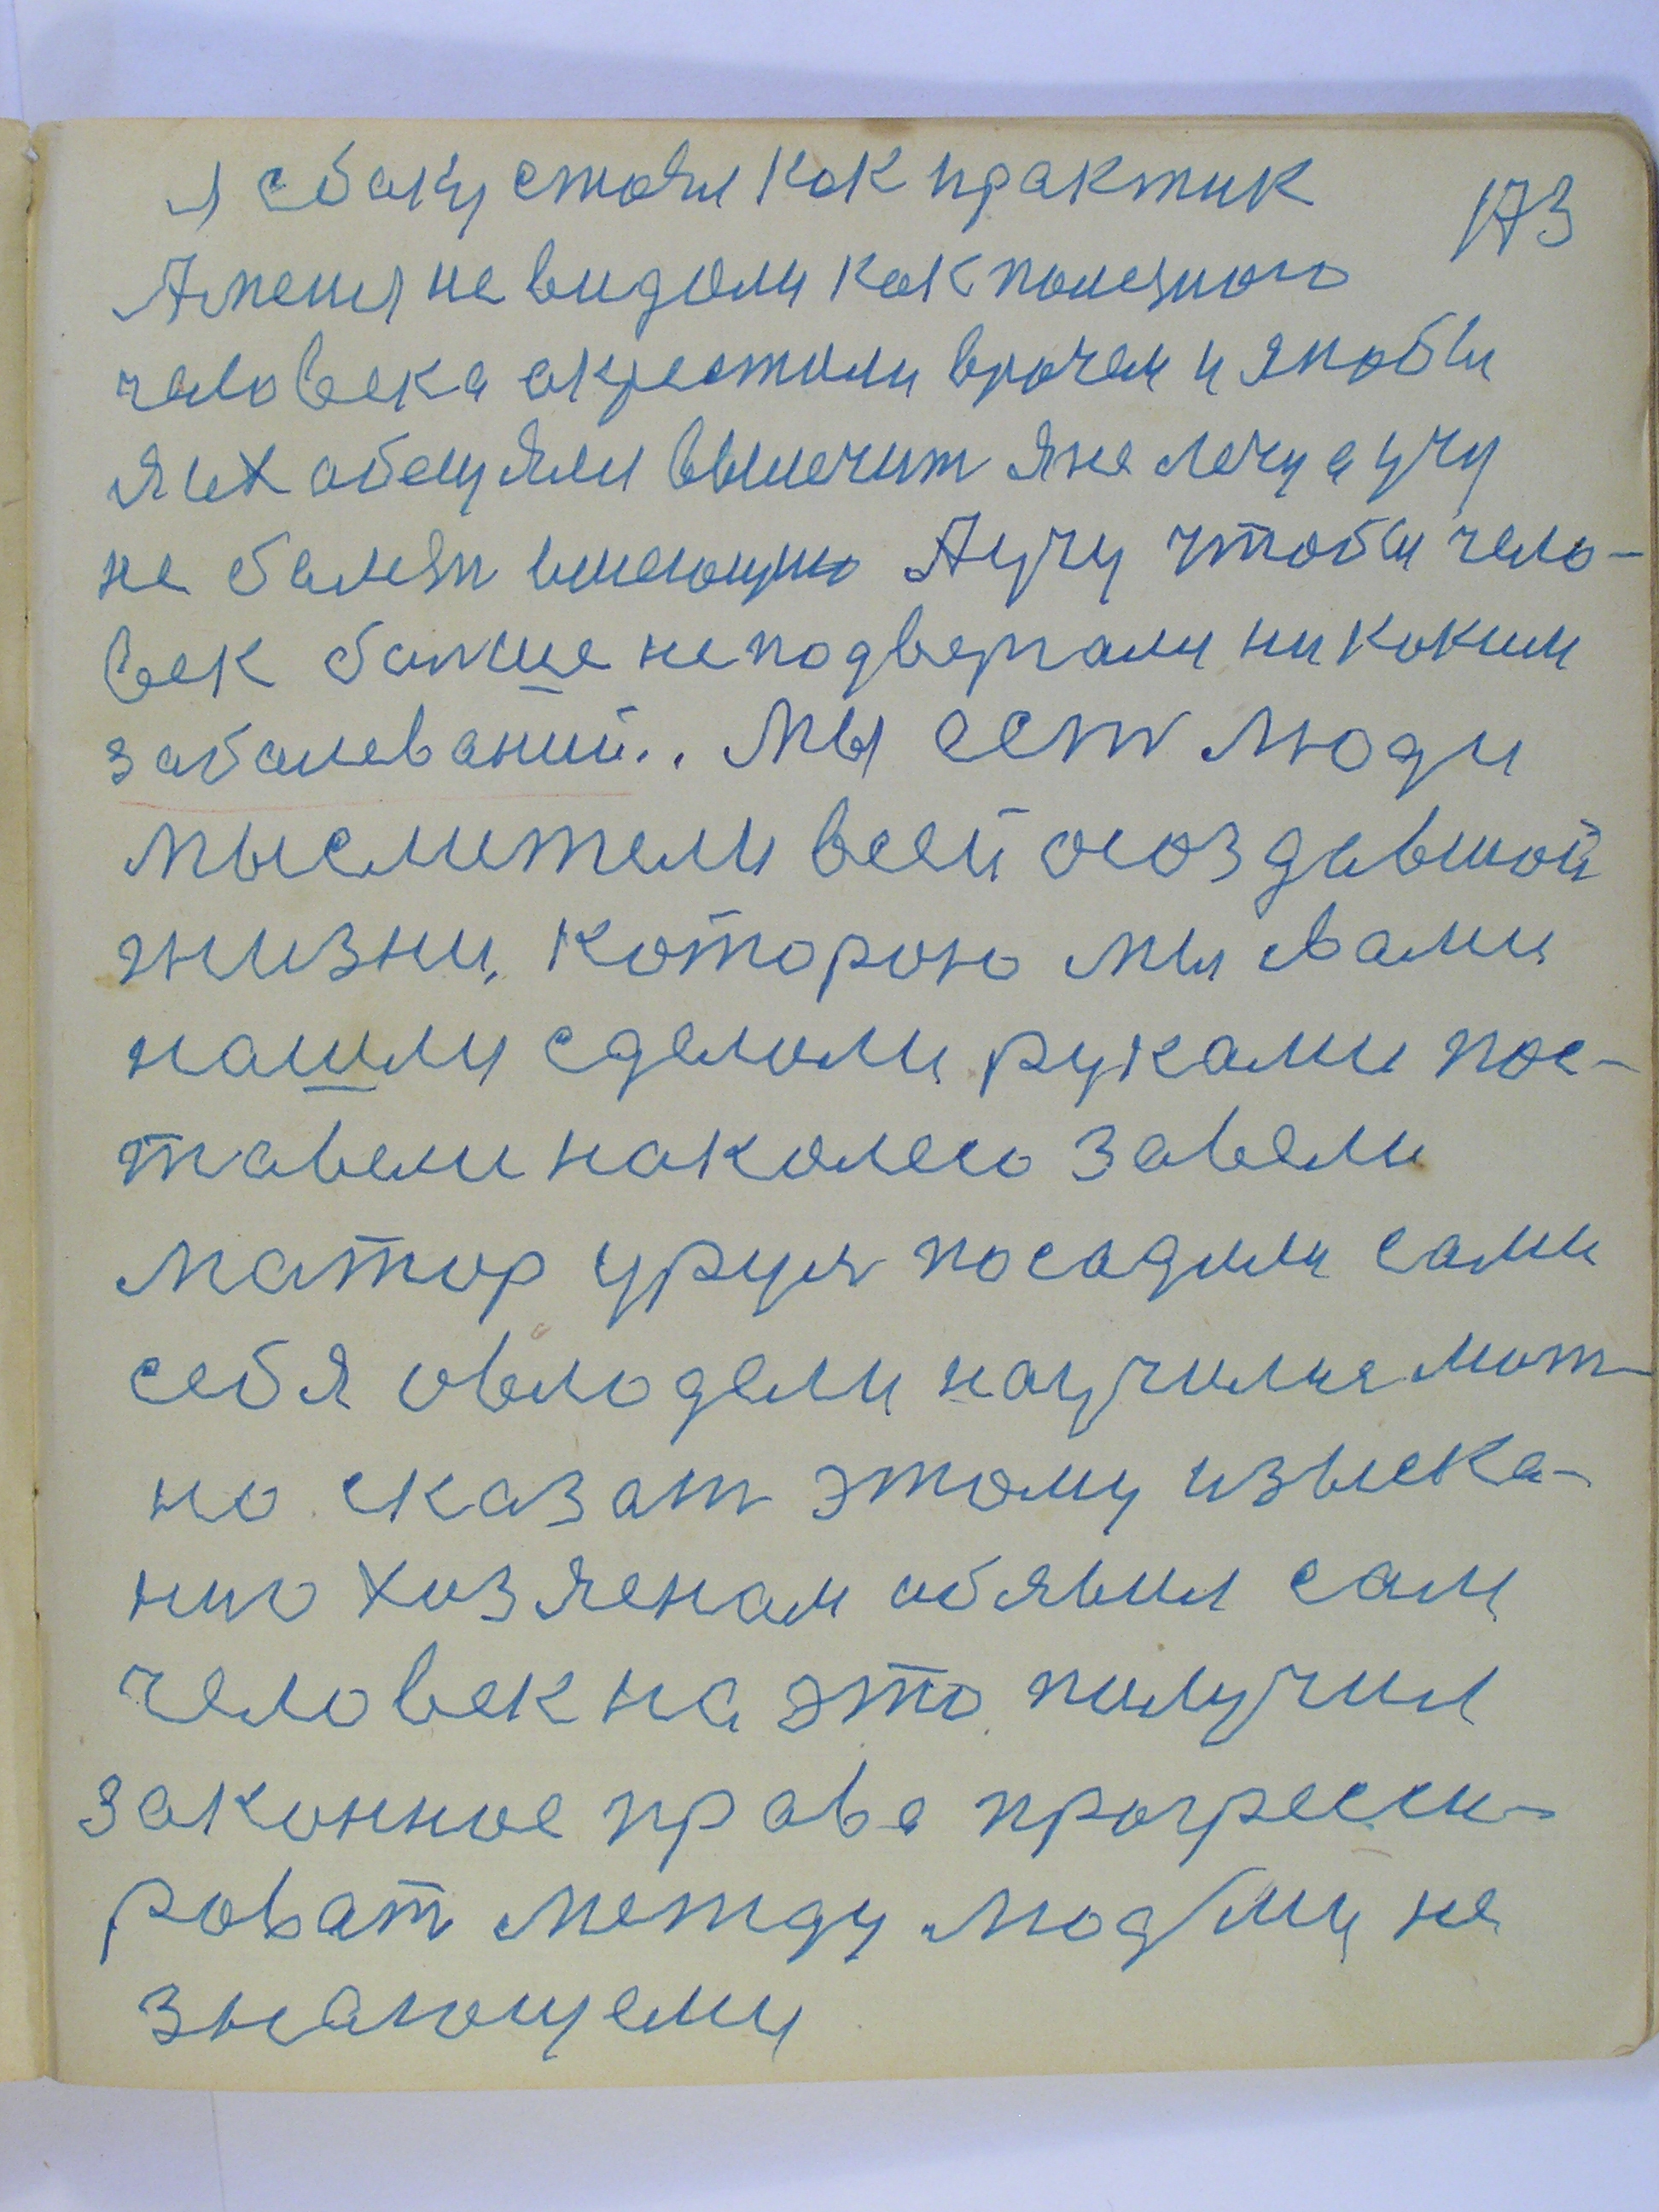 я сбоку стоял как практик
173
А меня не видали как полезного
человека акрестили врачем и якобы
я их абещялы вылечит я не лечу а учу
не балет Аучу чтобы чело-
век бальше неподвергали ни каким
заболеваний.. Мы ест люди
мыслители всей осоздавшой
жизни, которою мы свами
нашли сделали руками пос-
тавели наколесо завели
матор уруля посадили сами
себя овлодели научилис мот-
но сказат этому изыска-
нию хозяенам обявил сам
человек на это получил
законное права прогресси-
роват метду людьми не
знающеми